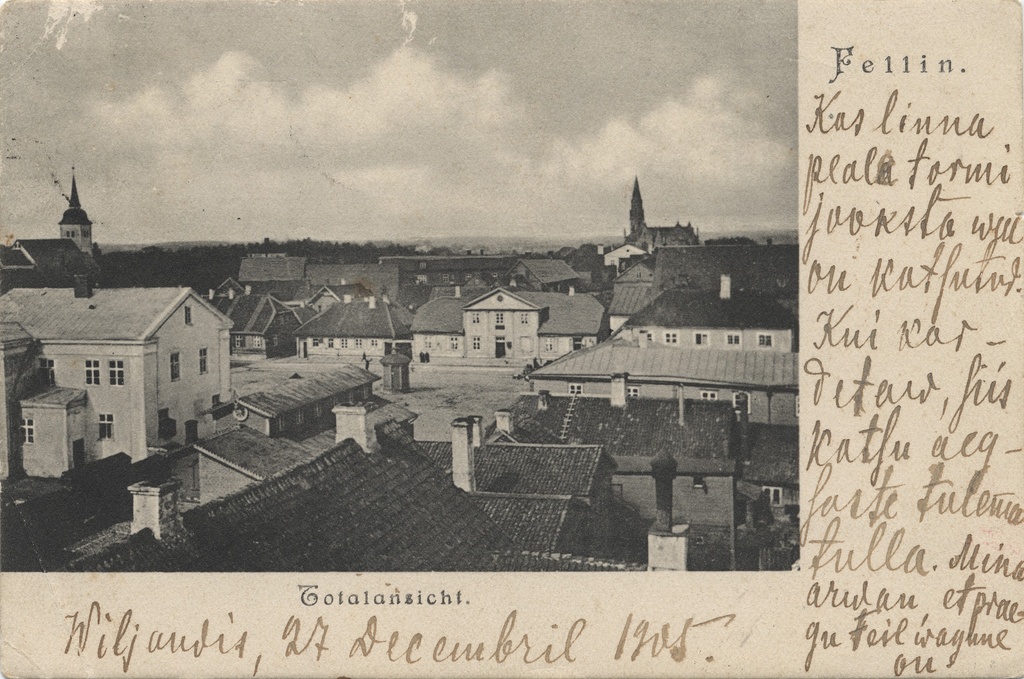 Fellin.
Kas linna
peale tormi
jooksta wõi
on katsutud.
Kui kar-
detaw, siis
katsu aeg-
saste tulema
tulla. Mina
arwan, et prae-
gu teil waene
on.
Totalansicht.
Wiljandis, 27 Decembril 1905.